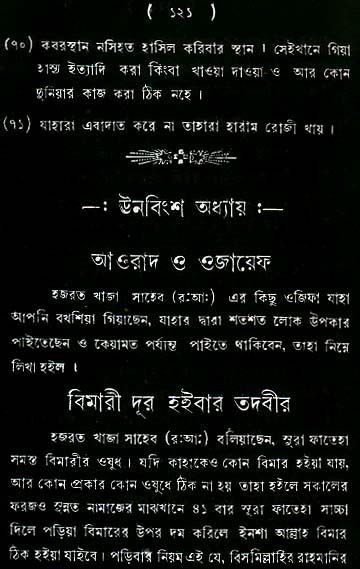 ( ১২১ )
(৭০) কবরস্থান নসিহত হাসিল করিবার স্থান । সেইখানে গিয়া
হাস্য ইত্যাদি করা কিংবা খাওয়া দাওয়া ও আর কোন
দুনিয়ার কাজ করা ঠিক নহে ।
(৭১) যাহারা এবাদাত করে না তাহারা হারাম রোজী খায় ।
—ঃ ঊনবিংশ অধ্যায় ঃ—
আওরাদ ও ওজায়েফ
হজরত খাজা সাহেব (রঃআঃ) এর কিছু ওজিফা যাহা
আপনি বখশিয়া গিয়াছেন, যাহার দ্বারা শতশত লোক উপকার
পাইতেছেন ও কেয়ামত পর্য্যন্ত পাইতে থাকিবেন, তাহা নিম্নে
লিখা হইল ।
বিমারী দূর হইবার তদবীর
হজরত খাজা সাহেব (রঃআঃ) বলিয়াছেন, সুরা ফাতেহা
সমস্ত বিমারীর ওষুধ । যদি কাহাকেও কোন বিমার হইয়া যায়,
আর কোন প্রকার কোন ওষুধে ঠিক না হয় তাহা হইলে সকালের
ফরজও সুন্নত নামাজের মাঝখানে ৪১ বার সুরা ফাতেহা সাচ্চা
দিলে পড়িয়া বিমারের উপর দম করিলে ইনশা আল্লাহ বিমার
ঠিক হইয়া যাইবে । পড়িবার নিয়ম এই যে, বিসমিল্লাহির রাহমানির